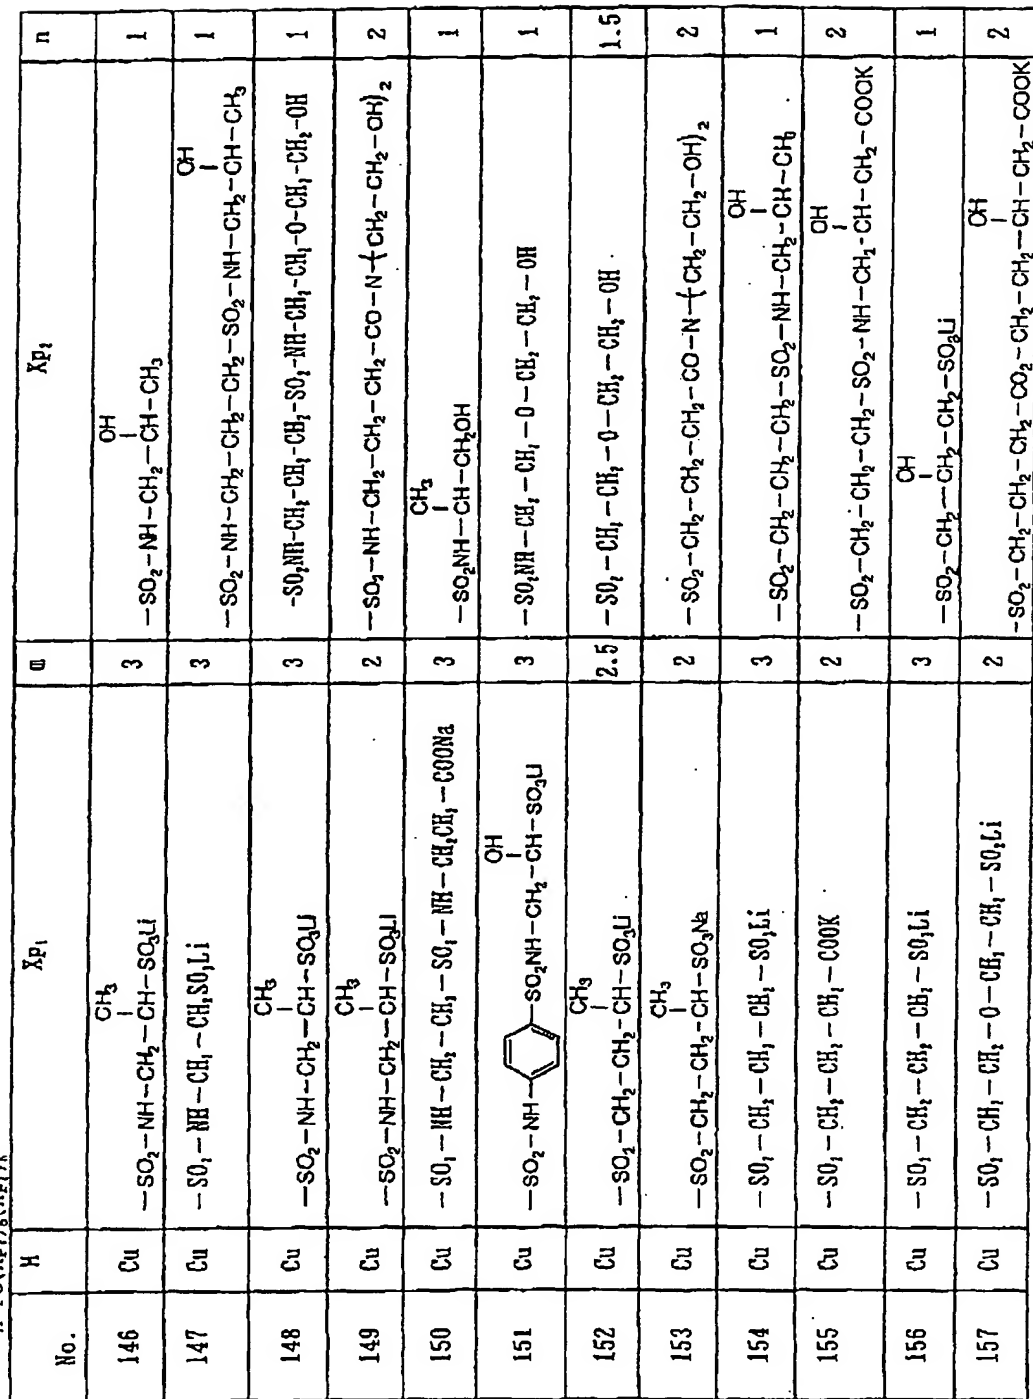 No. M Xp₁ m Xp₂ n
CH₃ OH
146 Cu —SO₂—NH—CH₂—CH—SO₃Li 3 —SO₂—NH—CH₂—CH—CH₃ 1
OH
147 Cu —SO₂—NH—CH₂—CH₂SO₃Li 3 —SO₂—NH—CH₂—CH₂—CH₂—SO₂—NH—CH₂—CH—CH₃ 1
CH₃
148 Cu —SO₂—NH—CH₂—CH—SO₃Li 3 -SO₂NH-CH₂-CH₂-CH₂-SO₂-NH-CH₂-CH₂-O-CH₂-CH₂-OH 1
CH₃
149 Cu —SO₂—NH—CH₂—CH—SO₃Li 2 —SO₂—NH—CH₂—CH₂—CH₂—CO—N—(CH₂—CH₂—OH)₂ 2
CH₃
150 Cu —SO₂—NH—CH₂—CH₂—SO₂—NH—CH₂CH₂—COONa 3 —SO₂NH—CH—CH₂OH 1
OH
151 Cu —SO₂—NH— —SO₂NH—CH₂—CH—SO₃Li 3 —SO₂NH—CH₂—CH₂—O—CH₂—CH₂—OH 1
CH₃
152 Cu —SO₂—CH₂—CH₂—CH—SO₃Li 2.5 —SO₂—CH₂—CH₂—O—CH₂—CH₂—OH 1.5
CH₃
153 Cu —SO₂—CH₂—CH₂—CH—SO₃Na 2 —SO₂—CH₂—CH₂—CH₂—CO—N—(CH₂—CH₂—OH)₂ 2
OH
154 Cu —SO₂—CH₂—CH₂—CH₂—SO₃Li 3 —SO₂—CH₂—CH₂—CH₂—SO₂—NH—CH₂—CH—CH₃ 1
OH
155 Cu —SO₂—CH₂—CH₂—CH₂—COOK 2 —SO₂—CH₂—CH₂—CH₂—SO₂—NH—CH₂—CH—CH₂—COOK 2
OH
156 Cu —SO₂—CH₂—CH₂—CH₂—SO₃Li 3 —SO₂—CH₂—CH—CH₂—SO₃Li 1
OH
157 Cu —SO₂—CH₂—CH₂—O—CH₂—CH₂—SO₃Li 2 —SO₂—CH₂—CH₂—CH₂—CO₂—CH₂—CH₂—CH—CH₂—COOK 2